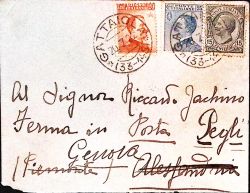 GATTAIOLA
(33-4
Al Signor Riccardo Jachino
Ferma in Posta Pegli
Genova
(Piemonte) Alessandria